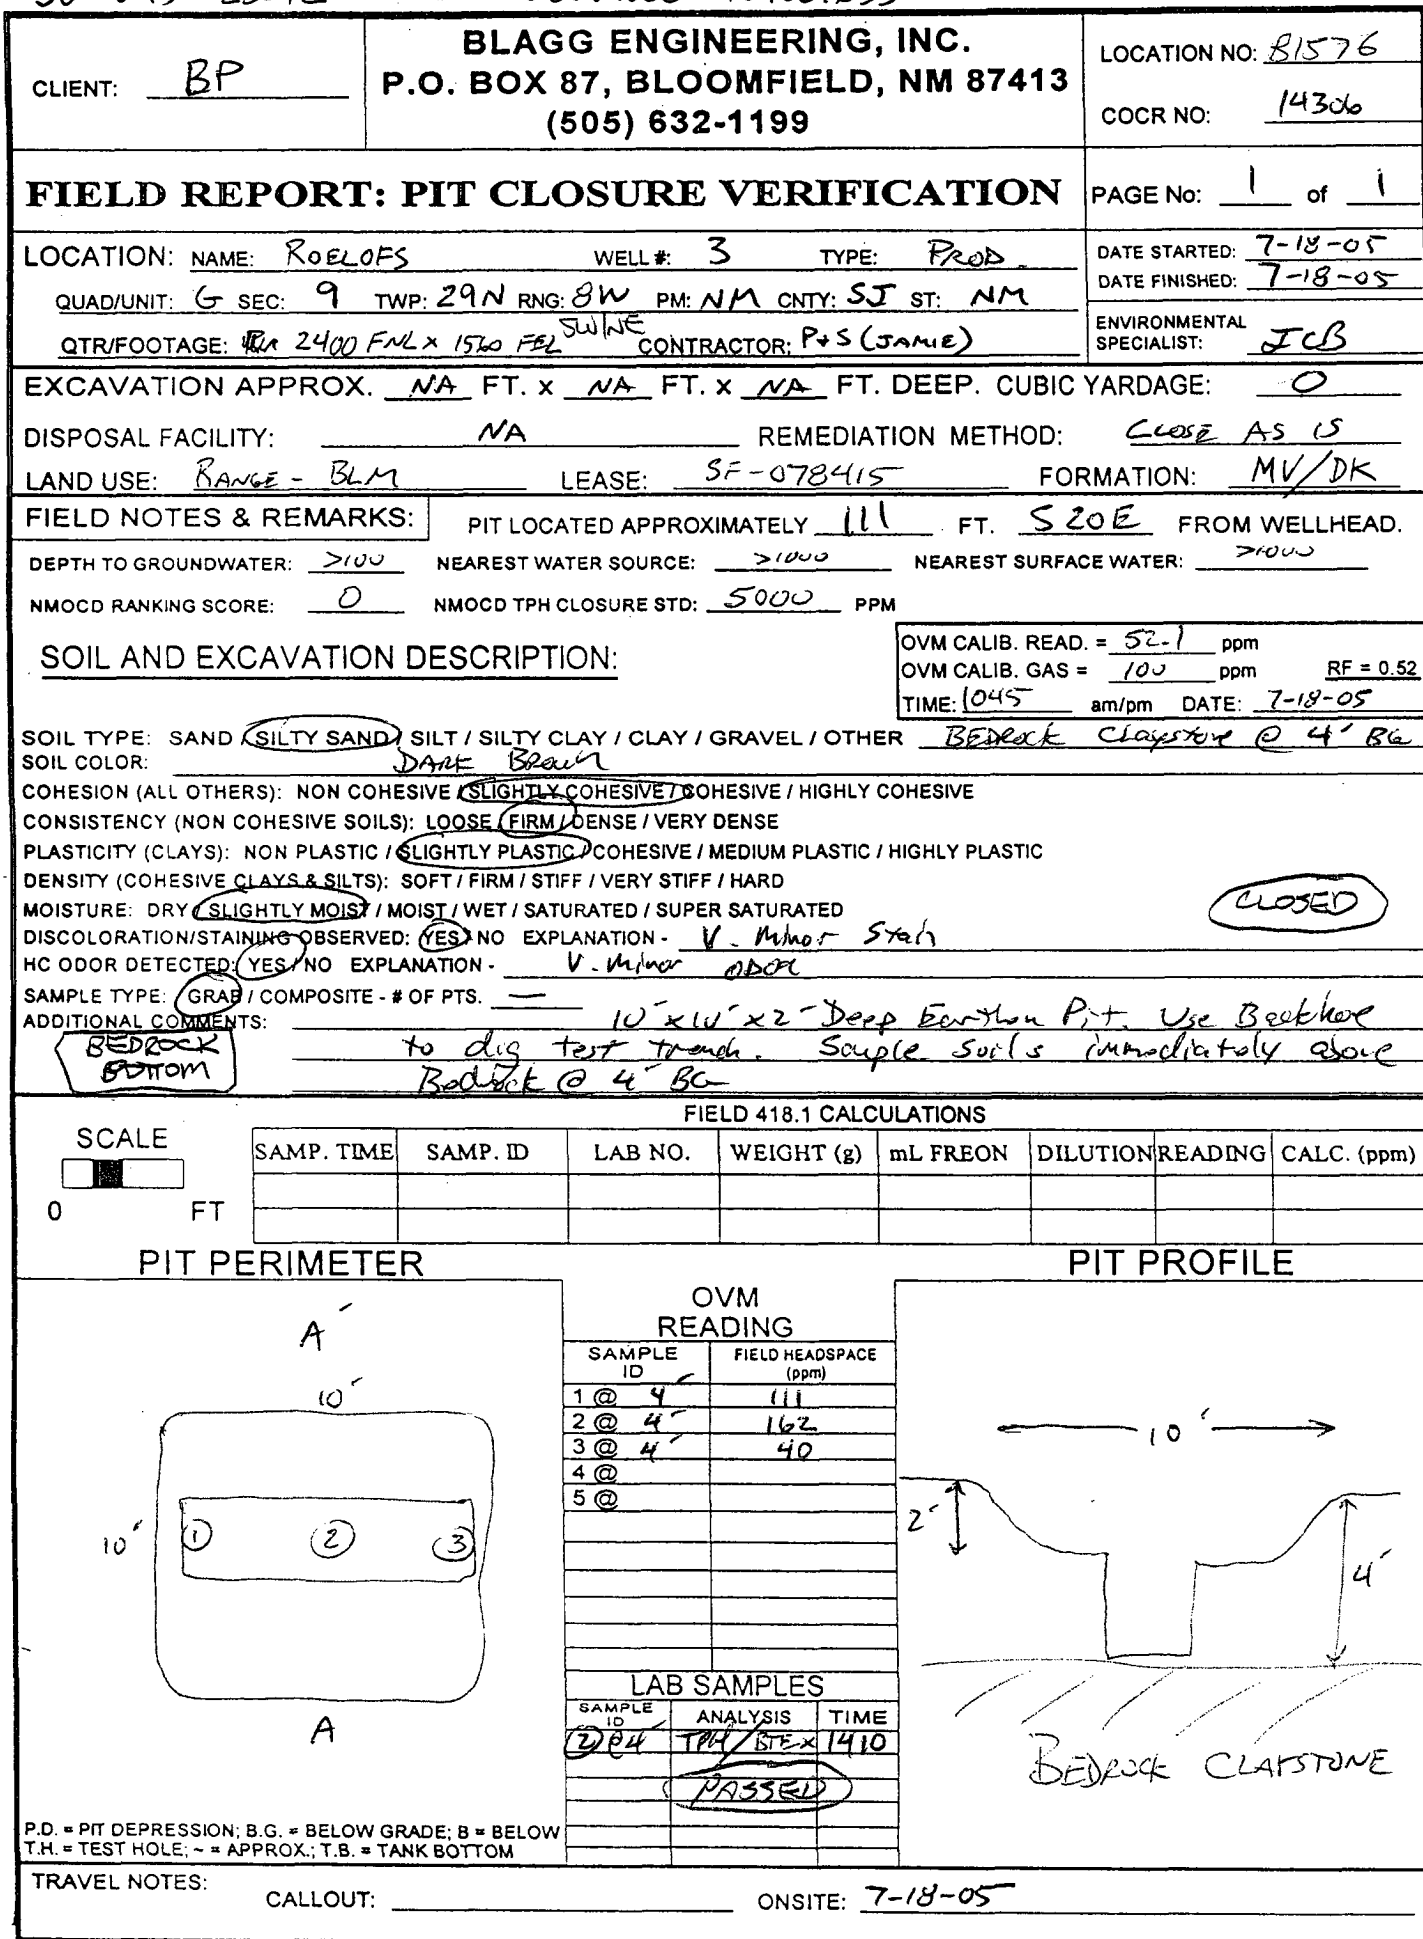 BLAGG ENGINEERING, INC.
P.O. BOX 87, BLOOMFIELD, NM 87413
(505) 632-1199
CLIENT: BP
LOCATION NO: B1576
COCR NO: 14306
FIELD REPORT: PIT CLOSURE VERIFICATION
PAGE No: 1 of 1
LOCATION: NAME: ROELOFS WELL #: 3 TYPE: PROD.
DATE STARTED: 7-18-05
DATE FINISHED: 7-18-05
QUAD/UNIT: G SEC: 9 TWP: 29N RNG: 8W PM: NM CNTY: SJ ST: NM
QTR/FOOTAGE: 2400 FNL x 1560 FEL SW/NE CONTRACTOR: P+S (JAMIE)
ENVIRONMENTAL SPECIALIST: JCB
EXCAVATION APPROX. NA FT. x NA FT. x NA FT. DEEP. CUBIC YARDAGE: 0
DISPOSAL FACILITY: NA REMEDIATION METHOD: CLOSE AS IS
LAND USE: RANGE - BLM LEASE: SF-078415 FORMATION: MV/DK
FIELD NOTES & REMARKS: PIT LOCATED APPROXIMATELY 111 FT. S20E FROM WELLHEAD.
DEPTH TO GROUNDWATER: >100 NEAREST WATER SOURCE: >1000 NEAREST SURFACE WATER: >1000
NMOCD RANKING SCORE: 0 NMOCD TPH CLOSURE STD: 5000 PPM
SOIL AND EXCAVATION DESCRIPTION:
OVM CALIB. READ. = 52.1 ppm
OVM CALIB. GAS = 100 ppm RF = 0.52
TIME: 1045 am/pm DATE: 7-18-05
SOIL TYPE: SAND / SILTY SAND / SILT / SILTY CLAY / CLAY / GRAVEL / OTHER BEDROCK Claystone @ 4' BG
SOIL COLOR: DARK Brown
COHESION (ALL OTHERS): NON COHESIVE / SLIGHTLY COHESIVE / COHESIVE / HIGHLY COHESIVE
CONSISTENCY (NON COHESIVE SOILS): LOOSE / FIRM / DENSE / VERY DENSE
PLASTICITY (CLAYS): NON PLASTIC / SLIGHTLY PLASTIC / COHESIVE / MEDIUM PLASTIC / HIGHLY PLASTIC
DENSITY (COHESIVE CLAYS & SILTS): SOFT / FIRM / STIFF / VERY STIFF / HARD
MOISTURE: DRY / SLIGHTLY MOIST / MOIST / WET / SATURATED / SUPER SATURATED
CLOSED
DISCOLORATION/STAINING OBSERVED: YES / NO EXPLANATION - V. Minor Stain
HC ODOR DETECTED: YES / NO EXPLANATION - V. Minor ODOR
SAMPLE TYPE: GRAB / COMPOSITE - # OF PTS. —
ADDITIONAL COMMENTS: 10' x 10' x 2' Deep Earthen Pit. Use Backhoe
BEDROCK BOTTOM
to dig test trench. Sample soils immediately above
Bedrock @ 4' BG
FIELD 418.1 CALCULATIONS
SCALE
0 FT
SAMP. TIME SAMP. ID LAB NO. WEIGHT (g) mL FREON DILUTION READING CALC. (ppm)
PIT PERIMETER
A'
10'
10'
1 2 3
A
OVM READING
SAMPLE ID FIELD HEADSPACE (ppm)
1 @ 4' 111
2 @ 4' 162
3 @ 4' 40
4 @
5 @
LAB SAMPLES
SAMPLE ID ANALYSIS TIME
2 @ 4' TPH/BTEX 1410
PASSED
PIT PROFILE
10'
2'
4'
BEDROCK CLAYSTONE
P.D. = PIT DEPRESSION; B.G. = BELOW GRADE; B = BELOW
T.H. = TEST HOLE; ~ = APPROX.; T.B. = TANK BOTTOM
TRAVEL NOTES: CALLOUT: ONSITE: 7-18-05